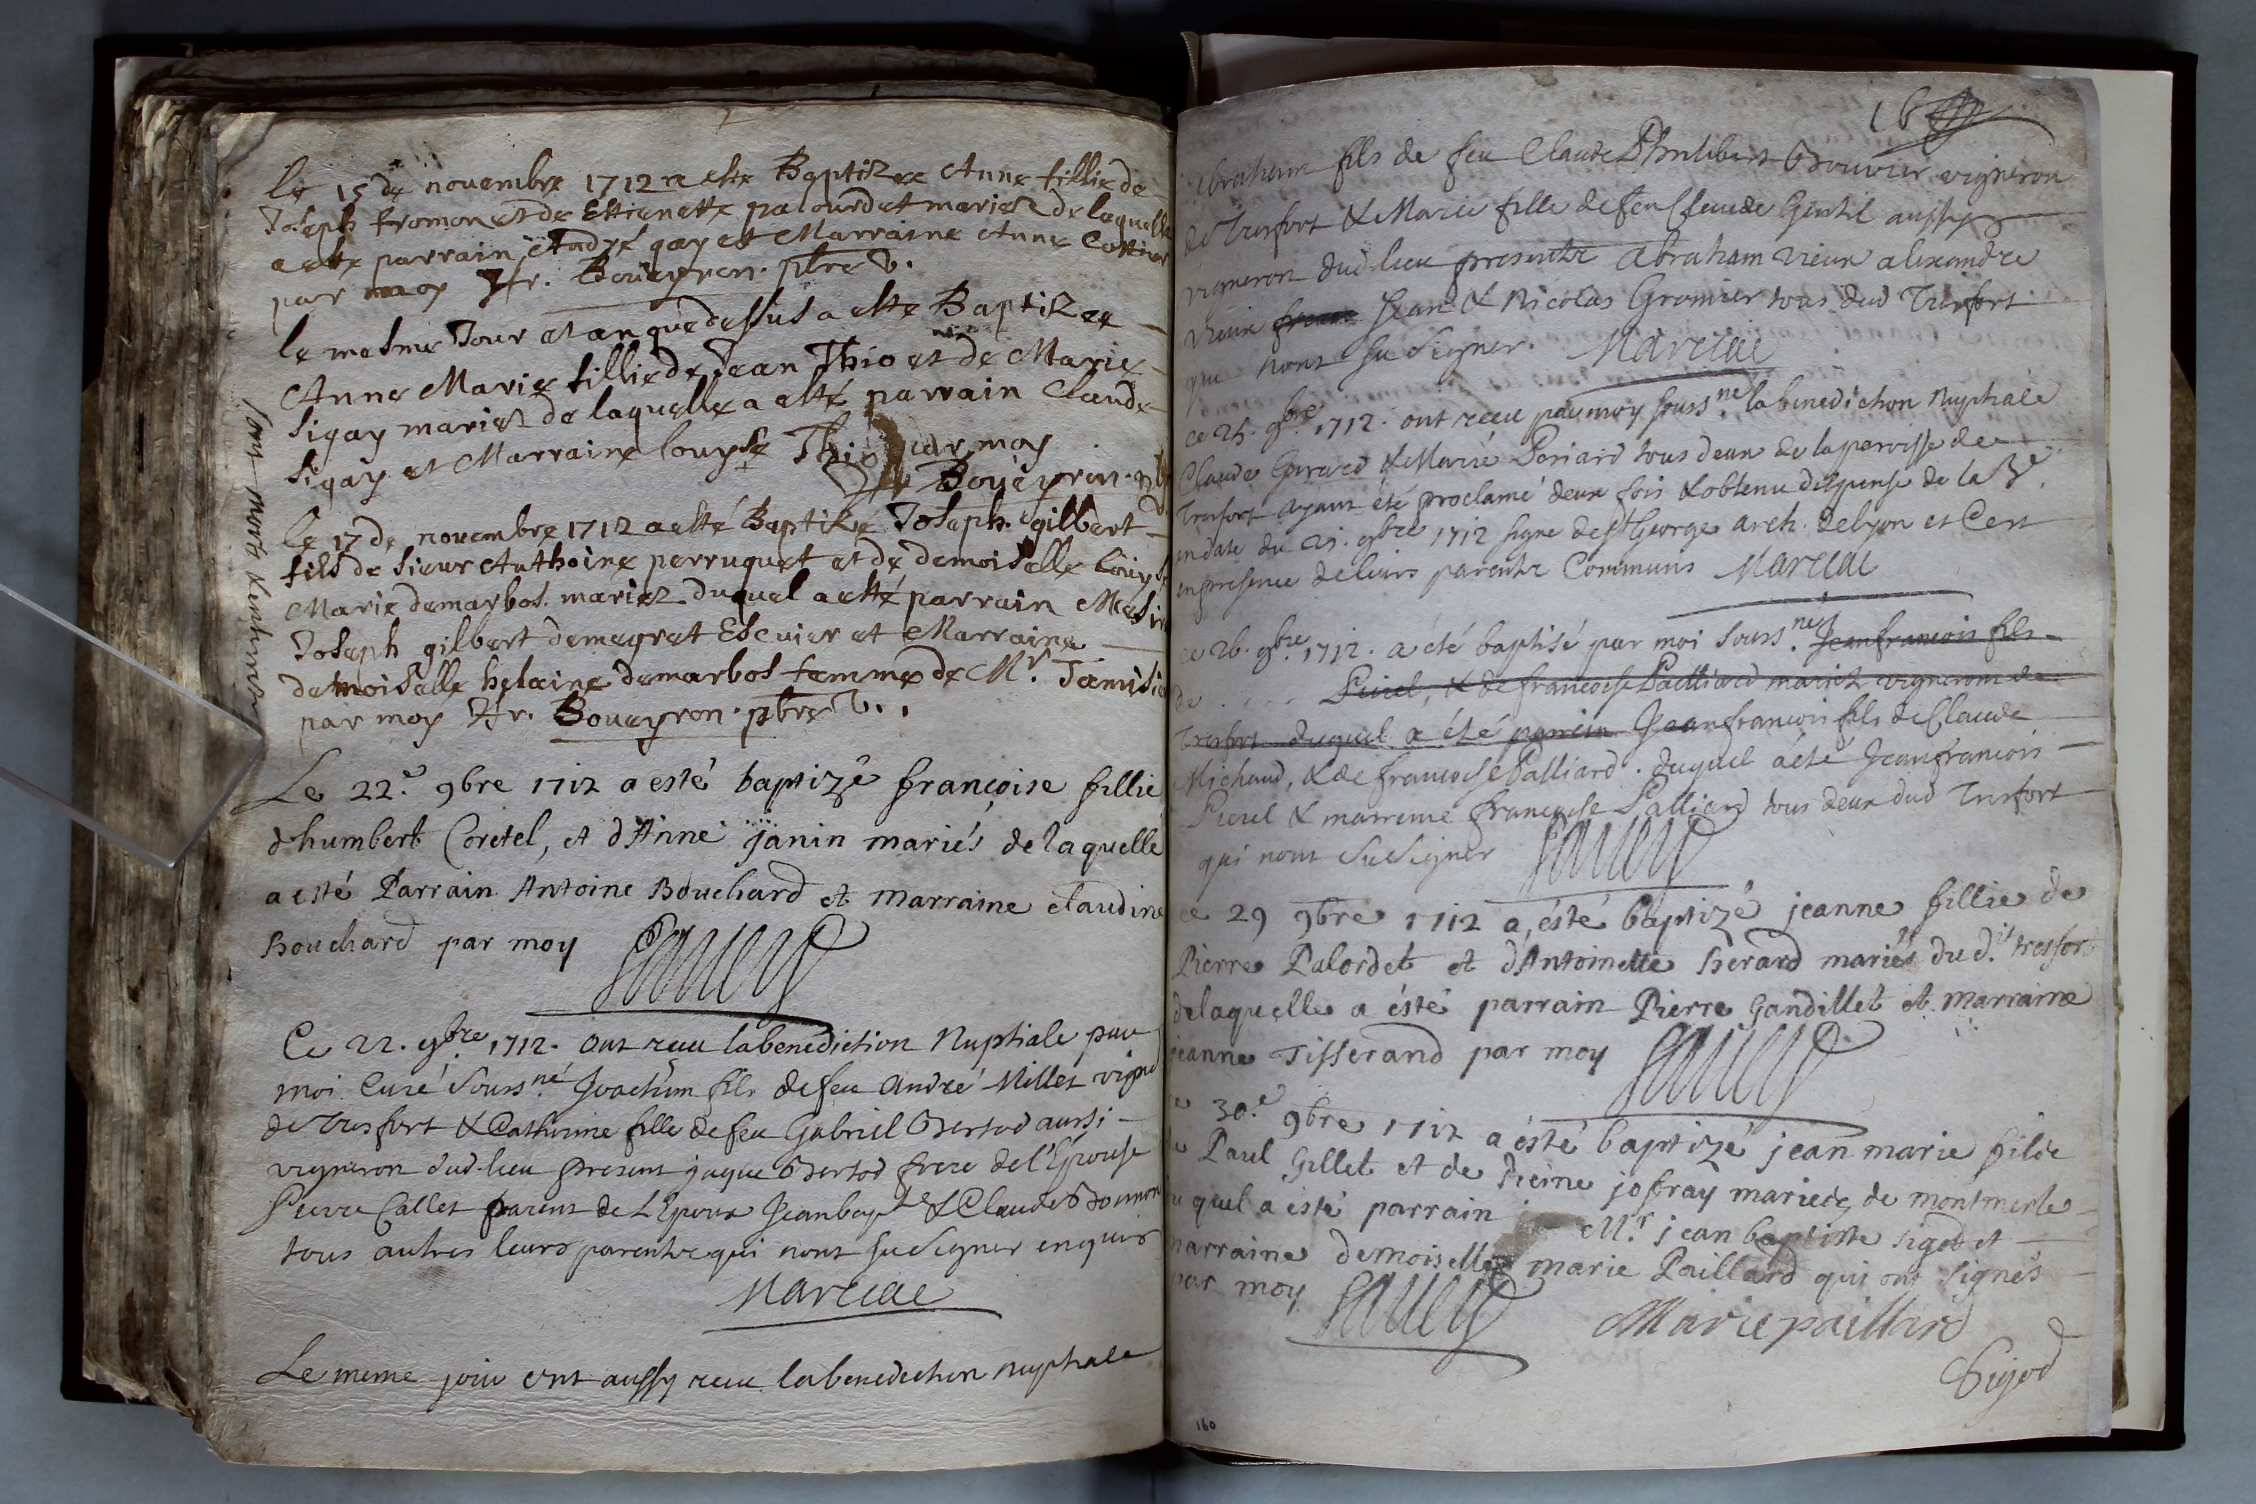 le 15 de novembre 1712 a esté Baptizee Anne fillie de
Joseph fromon et de Ettienette palourdet mariez de laquelle
a esté parrain Andre gay et Marraine Anne Cottier
par moy Fr. Boueyron. pbre V.
le mesme Jour et an que dessus a esté Baptizee
Anne Marie fillie de Jean Thio et de Marie
sigay mariez de laquelle a esté parrain Claude
sigay et Marraine louyse Thio par moy
Fr Boueyron
le 17 de novembre 1712 a esté Baptizé Joseph gilbert
fils de sieur Anthoine perruquet et de demoiselle louyse
Marie demarbos mariez duquel a esté parrain Mesire
Joseph gilbert demegret Escuier et Marraine
demoiselle helaine demarbos femme de Mr.
par moy Fr. Boueyron. pbre V.
Le 22e 9bre 1712 a esté baptizé françoise fillie
d'humbert Coretel, et d'Anne janin mariés de laquelle
a esté Parrain Antoine Bouchard et marraine claudine
Bouchard par moy
Ce 22. 9bre 1712. Ont receu la benediction Nuptiale par
moi Curé sousné. Joachim fils de feu André Millet vign
de Tresfort & Catherine fille de feu Gabriel Bertod aussi
vigneron dud. lieu present jaque Bertod frere de l'Epouse
Pierre Callet parent de l'Epoux Jeanbapte & Claude
tous autres leurs parents qui n'ont su signer enquis
Marciae
Le meme jour ont aussy receu la benediction nuptiale
16
Abraham fils de feu Claude Philibert Bouvier vigneron
de Tresfort & Marie fille de feu Claude Gentil aussy
vigneron dud lieu presents Abraham vieux alexandre
vieux Jean & Nicolas Gromier tous dud Tresfort
qui n'ont su signer. Marciae
ce 25. 9bre 1712. ont receu par moy sousné la benediction Nuptiale
Claude Girard & Marie Poriard tous deux de la paroisse de
Tresfort ayant été proclamé deux fois & obtenu dispense de la 3e.
en date du 21. 9bre 1712 signe de St George arch. de lyon et C'est
en presence de leurs parents Communs Marciae
ce 26. 9bre. 1712. a été baptisé par moi sousné. Jeanfrancois fils
de . . . . Puvel, & de francoise Palliard mariez vignerons de
Tresfort duquel a été parrain Jeanfrancois fils de Claude
Michaud, & de francoise Palliard. duquel a été Jeanfrancois
Puvel & marreine françoise Palliard tous deux dud Tresfort
qui n'ont su signer
ce 29 9bre 1712 a esté baptizé jeanne fillie de
Pierre Palordet et d'Antoinette herard mariés du d.it tresfort
de laquelle a esté parrain Pierre Gandillet et marraine
jeanne Tisserand par moy
30.e 9bre 1712 a esté baptizé jean marie fils
de Paul Gillet et de joffray mariede de montmerle
du quel a esté parrain Mr. jean baptiste sigod et
marraine demoiselle marie Paillard qui ont signés
par moy
Marie paillard
Sigod
160